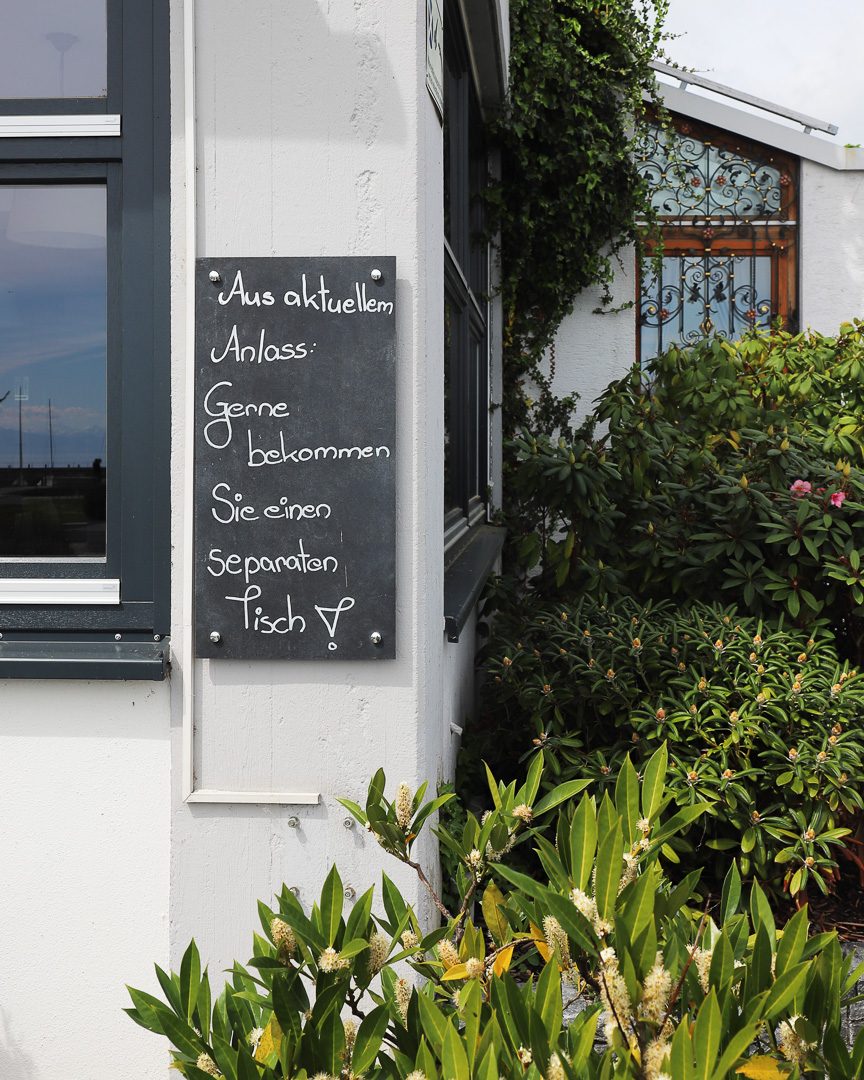 Aus aktuellem
Anlass:
Gerne
bekommen
Sie einen
separaten
Tisch!